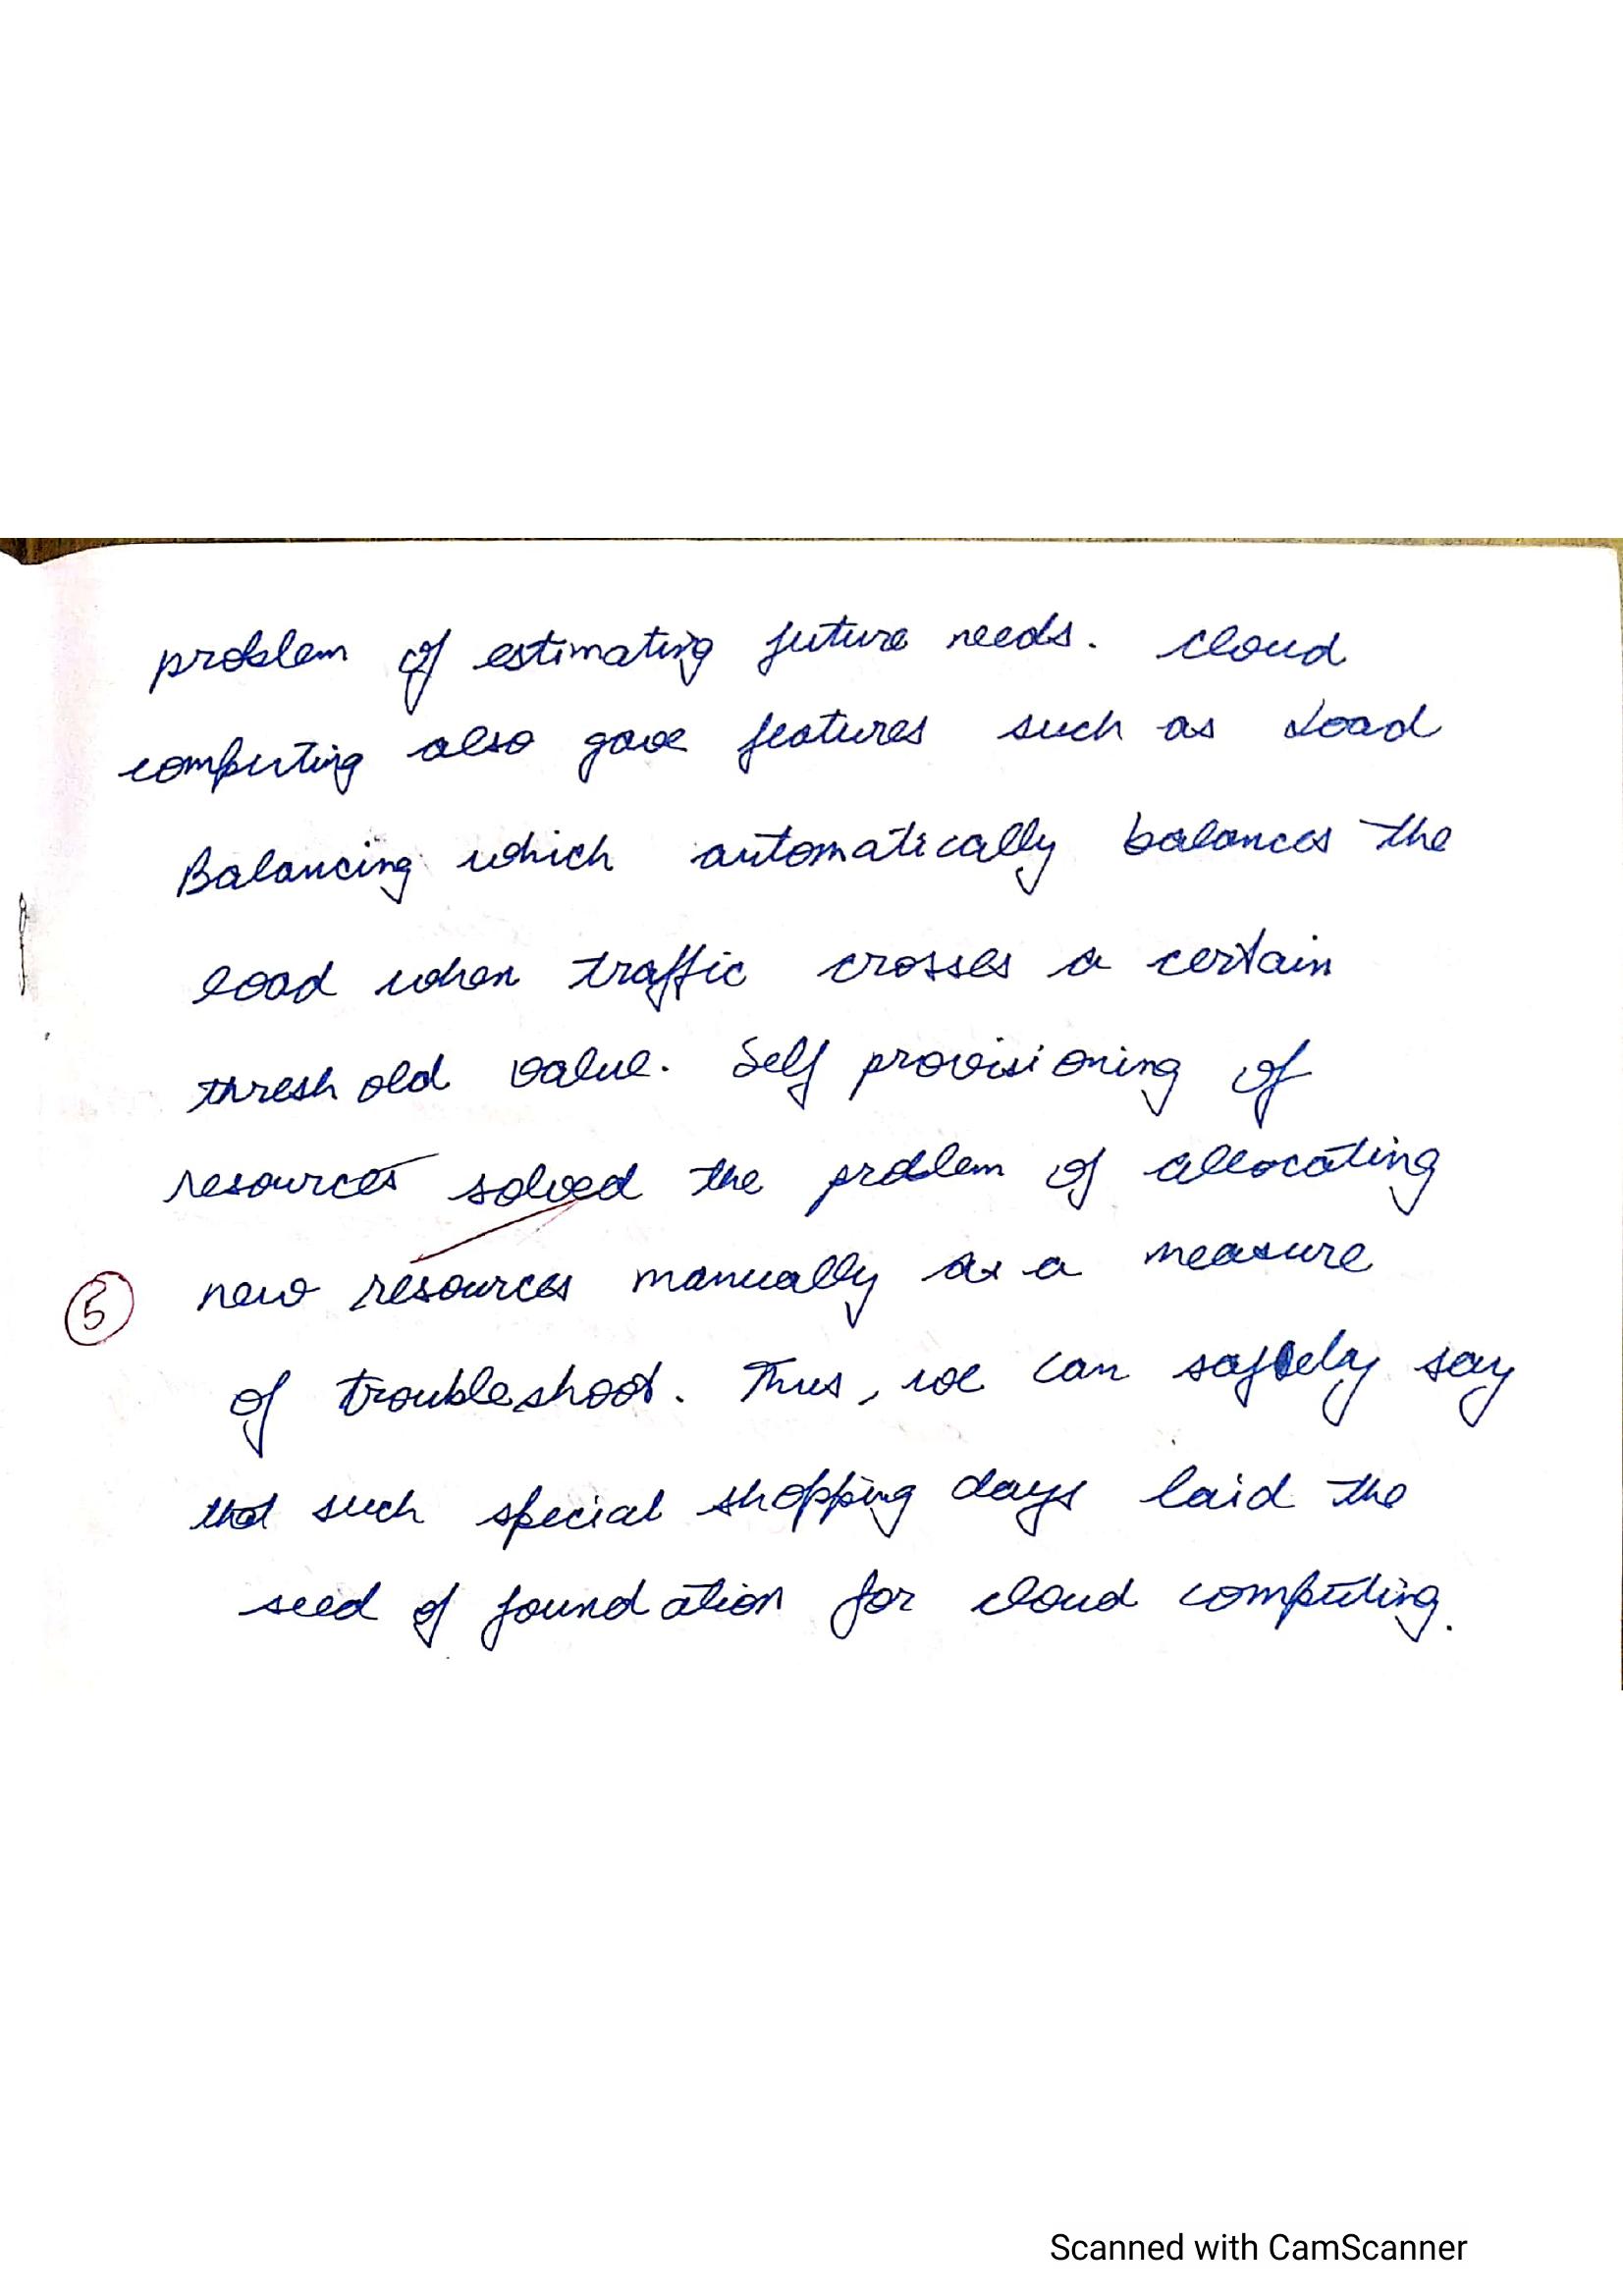 problem of estimating future needs. cloud
computing also gave features such as Load
Balancing which automatically balances the
load when traffic crosses a certain
threshold value. Self provisioning of
resources solved the problem of allocating
new resources manually as a measure
5
of troubleshoot. Thus, we can safely say
that such special shopping days laid the
seed of foundation for cloud computing.
Scanned with CamScanner